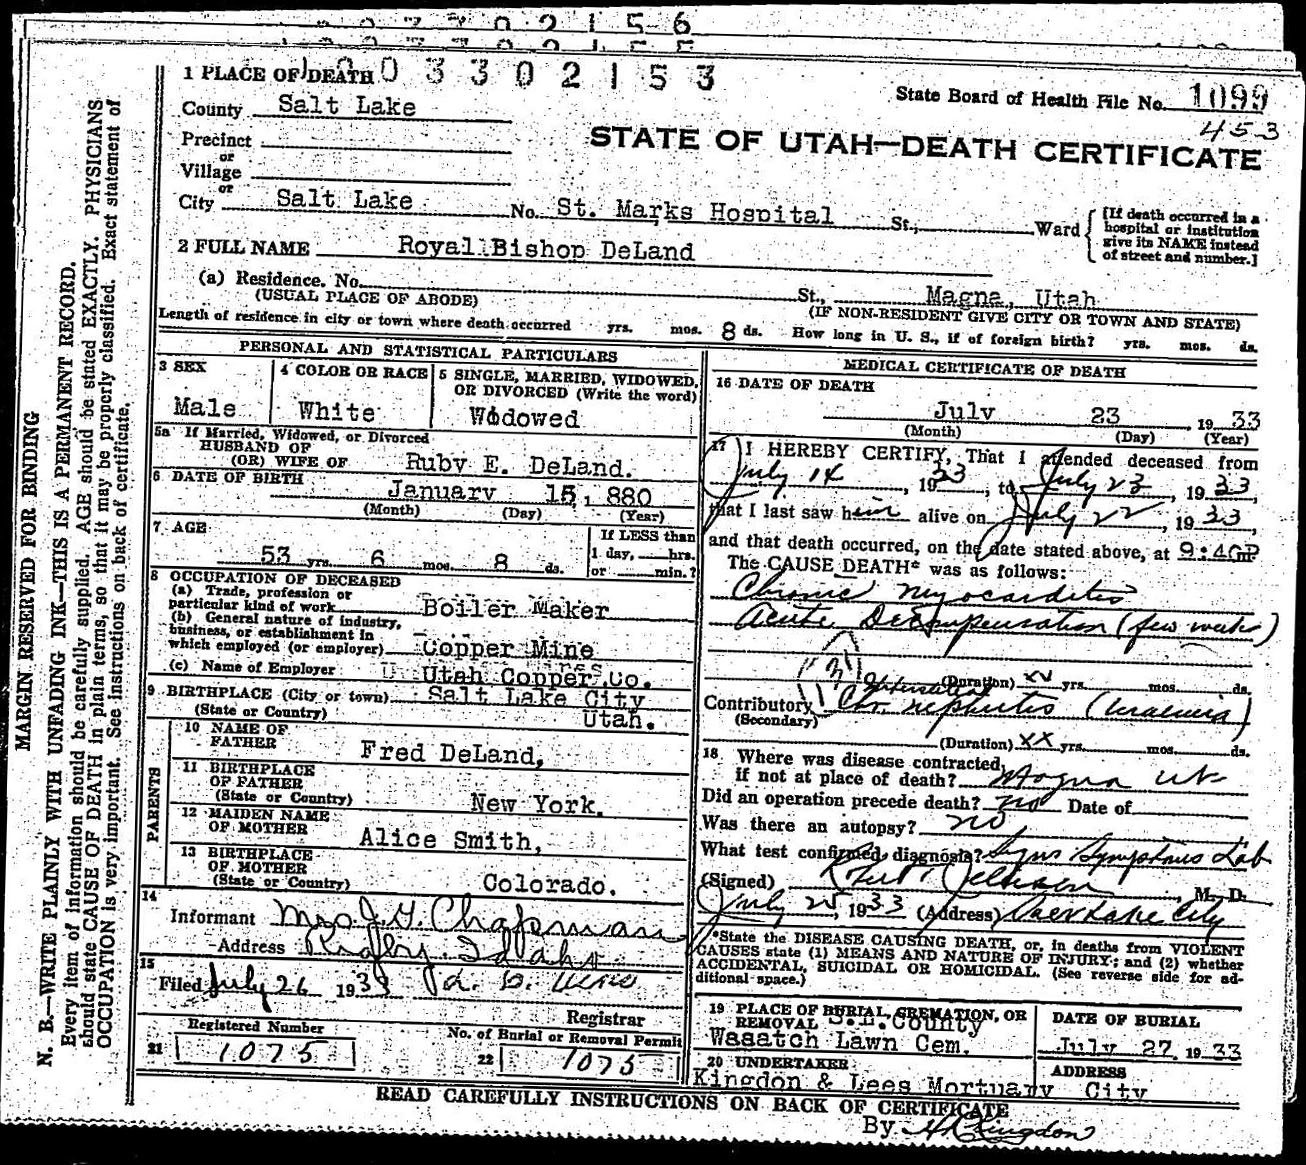 0 2 1 5 6
1 0 0 3 3 0 2 1 5 3
1 PLACE OF DEATH
State Board of Health File No. 1099
453
County Salt Lake
STATE OF UTAH—DEATH CERTIFICATE
Precinct
or
Village
or
City Salt Lake No. St. Marks Hospital St., Ward
[If death occurred in a
hospital or institution
give its NAME instead
of street and number.]
2 FULL NAME Royal Bishop DeLand
(a) Residence. No. St., Magna, Utah
(USUAL PLACE OF ABODE) (IF NON-RESIDENT GIVE CITY OR TOWN AND STATE)
Length of residence in city or town where death occurred yrs. mos. 8 ds. How long in U. S., if of foreign birth? yrs. mos. ds.
PERSONAL AND STATISTICAL PARTICULARS
3 SEX Male
4 COLOR OR RACE White
5 SINGLE, MARRIED, WIDOWED,
OR DIVORCED (Write the word)
Widowed
5a If Married, Widowed, or Divorced
HUSBAND OF
(OR) WIFE OF Ruby E. DeLand.
6 DATE OF BIRTH January 15, 880
(Month) (Day) (Year)
7 AGE
53 yrs. 6 mos. 8 ds.
If LESS than
1 day, hrs.
or min.?
8 OCCUPATION OF DECEASED
(a) Trade, profession or
particular kind of work Boiler Maker
(b) General nature of industry,
business, or establishment in
which employed (or employer) Copper Mine
(c) Name of Employer Utah Copper Co.
9 BIRTHPLACE (City or town) Salt Lake City
(State or Country) Utah.
PARENTS
10 NAME OF
FATHER Fred DeLand,
11 BIRTHPLACE
OF FATHER
(State or Country) New York.
12 MAIDEN NAME
OF MOTHER Alice Smith,
13 BIRTHPLACE
OF MOTHER
(State or Country) Colorado.
14
Informant Mrs J. G. Chapman
Address Rigby, Idaho
15
Filed July 26 1933
Registrar
Registered Number
21 1075
No. of Burial or Removal Permit
22 1075
MEDICAL CERTIFICATE OF DEATH
16 DATE OF DEATH
July 23 1933
(Month) (Day) (Year)
17 I HEREBY CERTIFY, That I attended deceased from
July 14, 1933, to July 23, 1933
that I last saw him alive on July 22, 1933
and that death occurred, on the date stated above, at 9:40 P
The CAUSE DEATH* was as follows:
Chronic Myocarditis
Acute Decompensation (few weeks)
(Duration) xx yrs. mos. ds.
Interstitial
Contributory Chr. nephritis (Uraemia)
(Secondary)
(Duration) xx yrs. mos. ds.
18 Where was disease contracted
if not at place of death? Magna Ut
Did an operation precede death? no Date of
Was there an autopsy? no
What test confirmed diagnosis? Signs Symptoms Lab
(Signed) M. D.
July 25, 1933 (Address) Salt Lake City
*State the DISEASE CAUSING DEATH, or, in deaths from VIOLENT
CAUSES state (1) MEANS AND NATURE OF INJURY; and (2) whether
ACCIDENTAL, SUICIDAL OR HOMICIDAL. (See reverse side for ad-
ditional space.)
19 PLACE OF BURIAL, CREMATION, OR
REMOVAL S.L. County
Wasatch Lawn Cem.
DATE OF BURIAL
July 27 1933
20 UNDERTAKER
Kingdon & Lees Mortuary
ADDRESS
City
READ CAREFULLY INSTRUCTIONS ON BACK OF CERTIFICATE
By
MARGIN RESERVED FOR BINDING
N. B.—WRITE PLAINLY WITH UNFADING INK—THIS IS A PERMANENT RECORD.
Every item of information should be carefully supplied. AGE should be stated EXACTLY. PHYSICIANS
should state CAUSE OF DEATH in plain terms, so that it may be properly classified. Exact statement of
OCCUPATION is very important. See instructions on back of certificate.